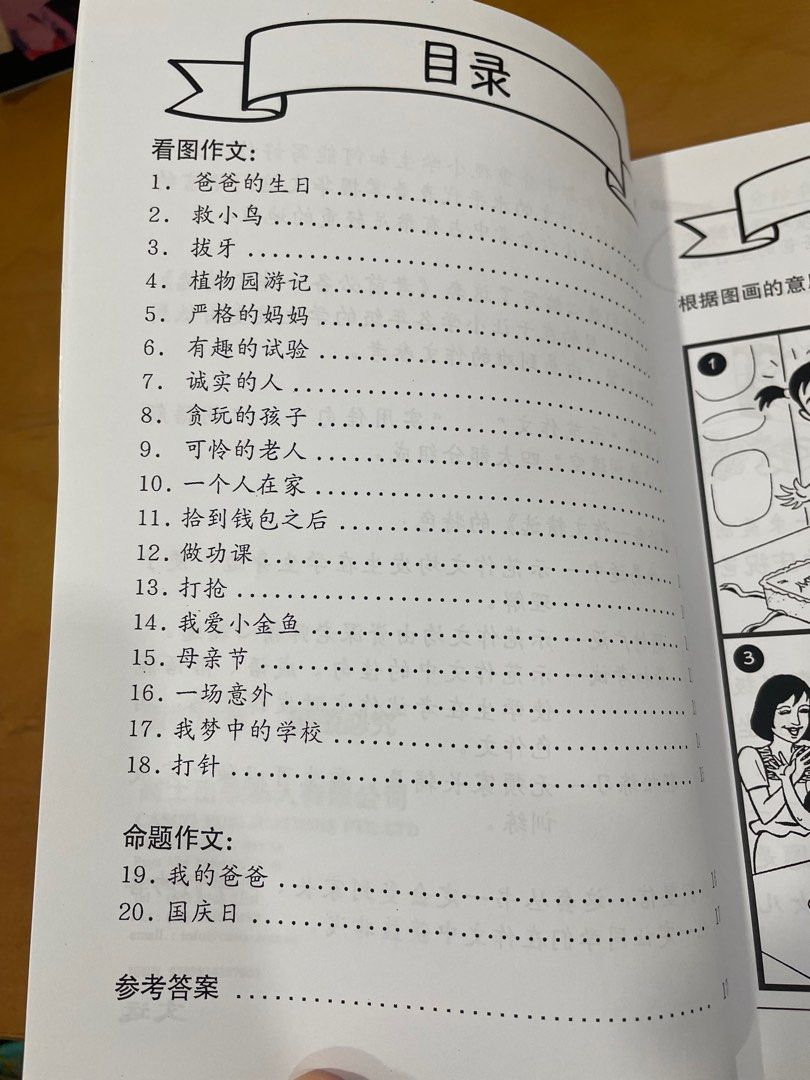 目录
看图作文:
1. 爸爸的生日
2. 救小鸟
3. 拔牙
4. 植物园游记
5. 严格的妈妈
6. 有趣的试验
7. 诚实的人
8. 贪玩的孩子
9. 可怜的老人
10. 一个人在家
11. 拾到钱包之后
12. 做功课
13. 打抢
14. 我爱小金鱼
15. 母亲节
16. 一场意外
17. 我梦中的学校
18. 打针
命题作文:
19. 我的爸爸
20. 国庆日
参考答案
根据图画的意
1
3